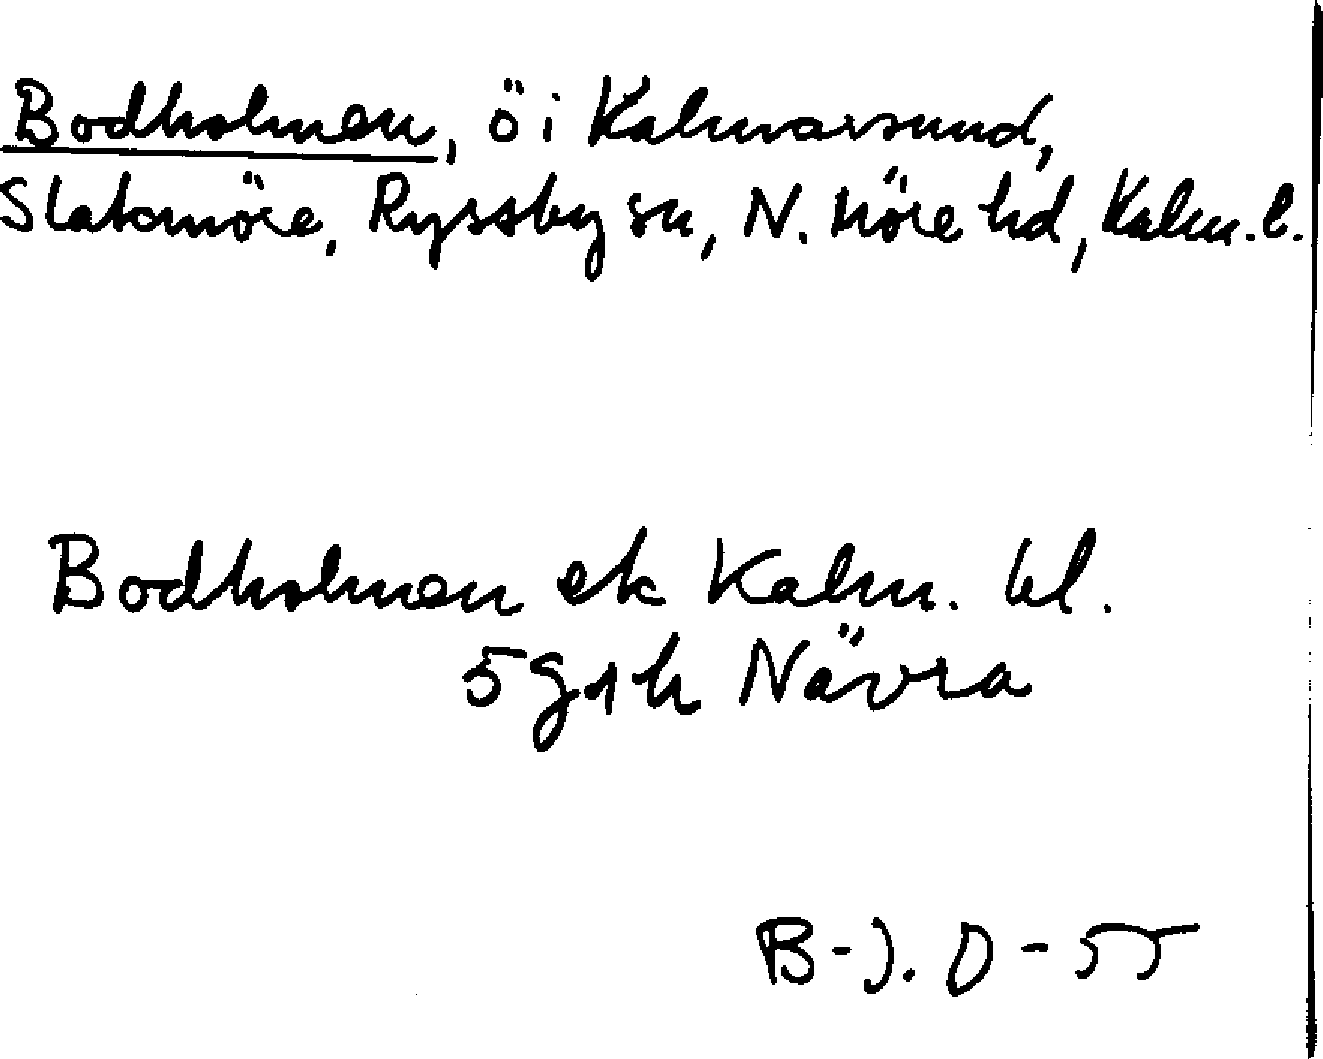 Bodholmen, ö i Kalmarsund,
Slakmöre, Ryssby sn, N. Möre hd, Kalm. l.
Bodholmen ek Kalm. bl.
5 g 1 h Nävra
B-J. O-55